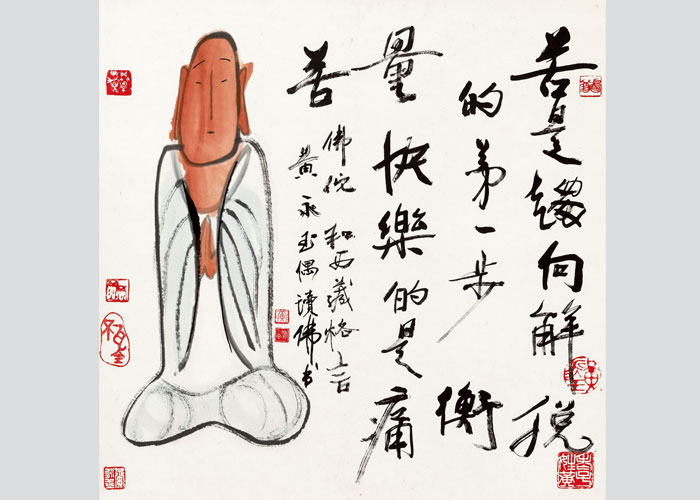 苦是趨向解脱
的第一步衡
量快樂的是痛
苦
佛佗和西藏格言
黄永玉偶讀佛书